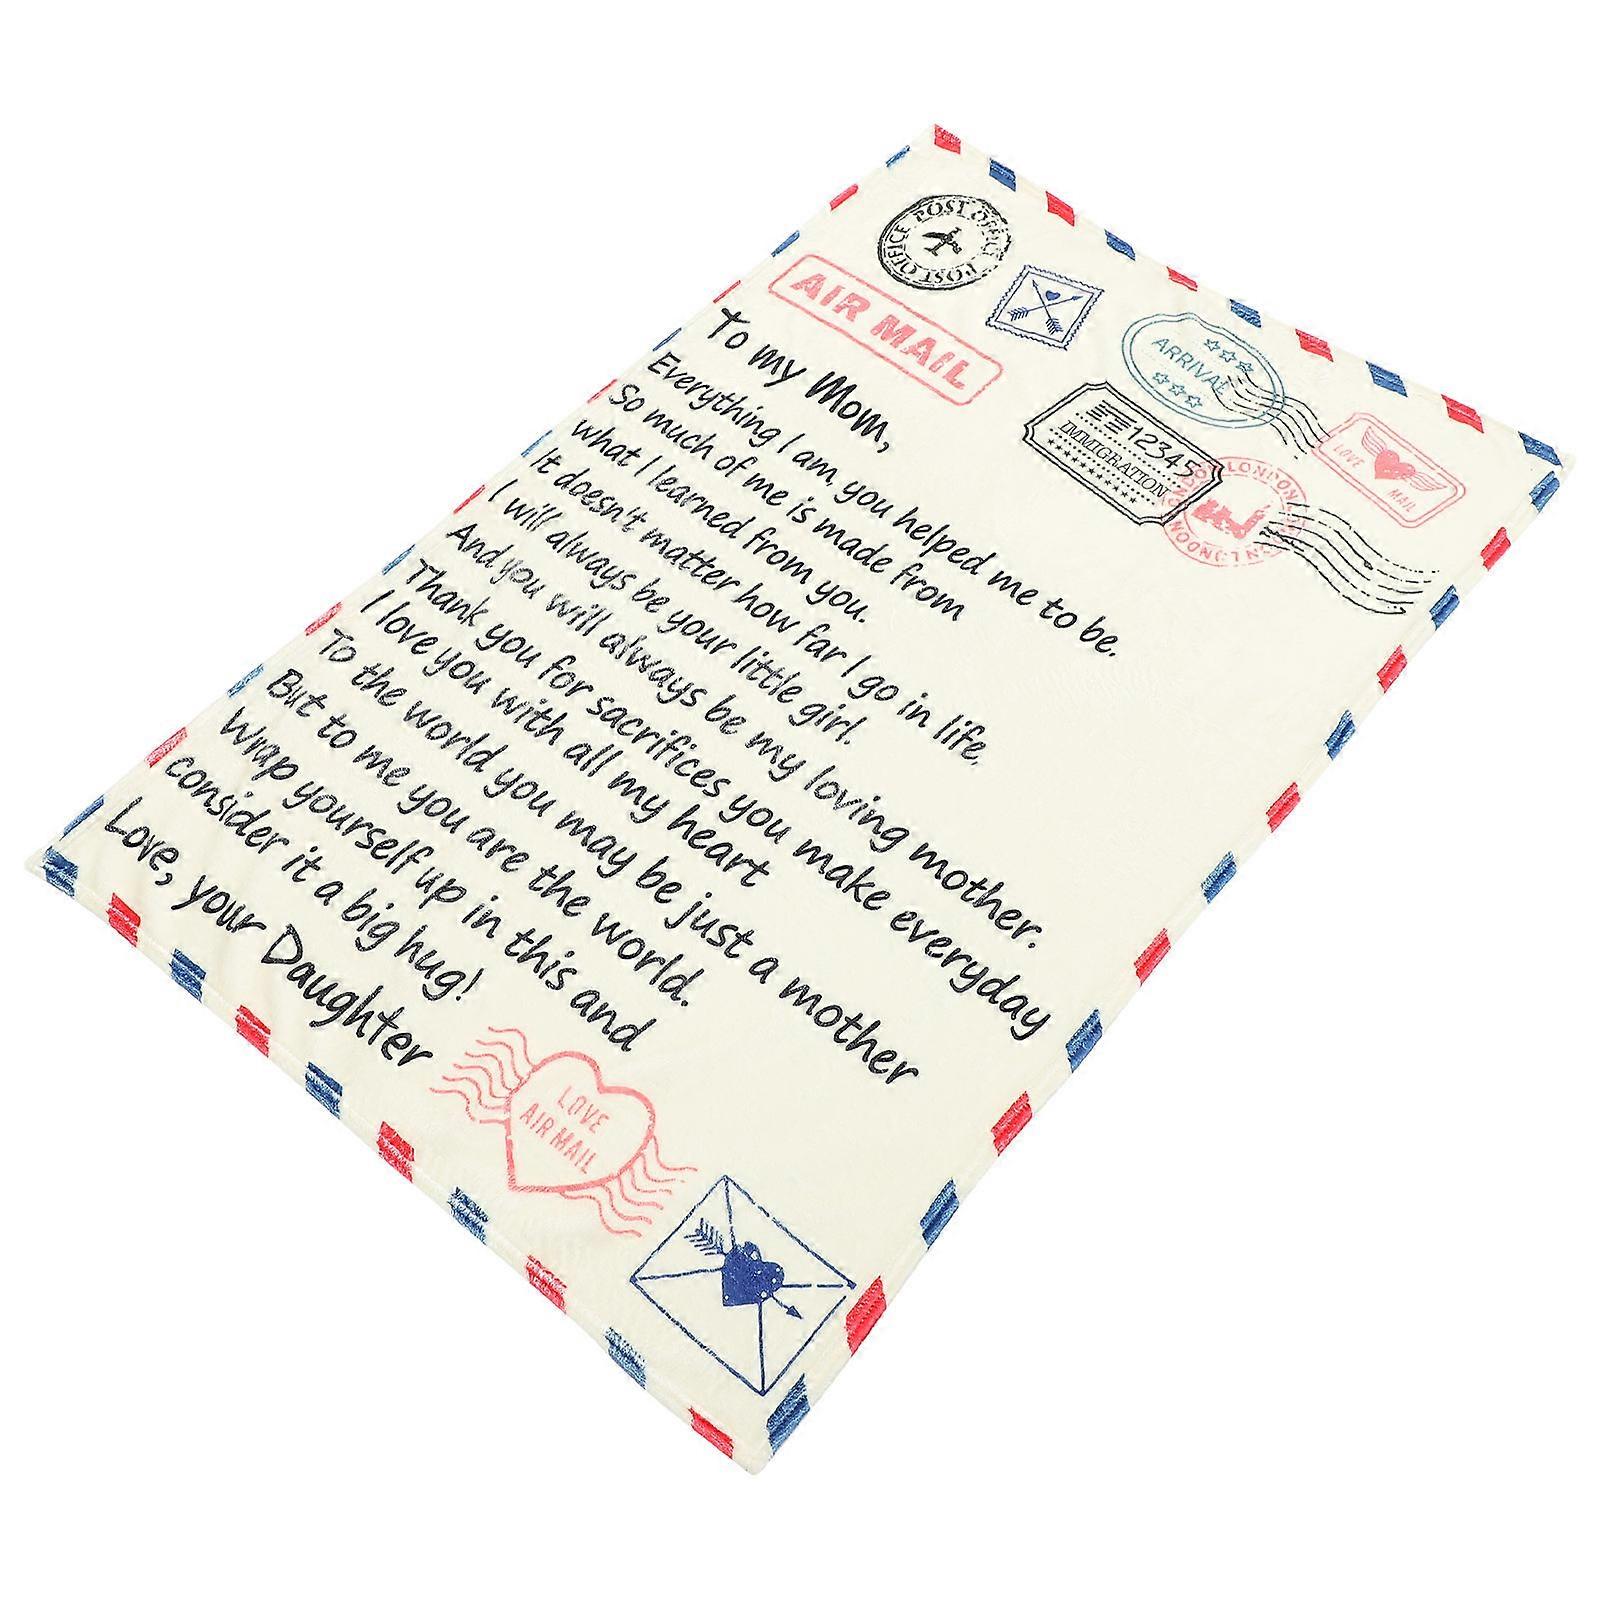 POST OFFICE POST OFFICE
AIR MAIL
ARRIVAL
12345
IMMIGRATION
LOVE
MAIL
LONDON LONDON LONDON
To my Mom,
Everything I am, you helped me to be.
So much of me is made from
what I learned from you.
It doesn't matter how far I go in life,
I will always be your little girl.
And you will always be my loving mother.
Thank you for sacrifices you make everyday
I love you with all my heart
To the world you may be just a mother
But to me you are the world.
Wrap yourself up in this and
consider it a big hug!
Love, your Daughter
LOVE
AIR MAIL